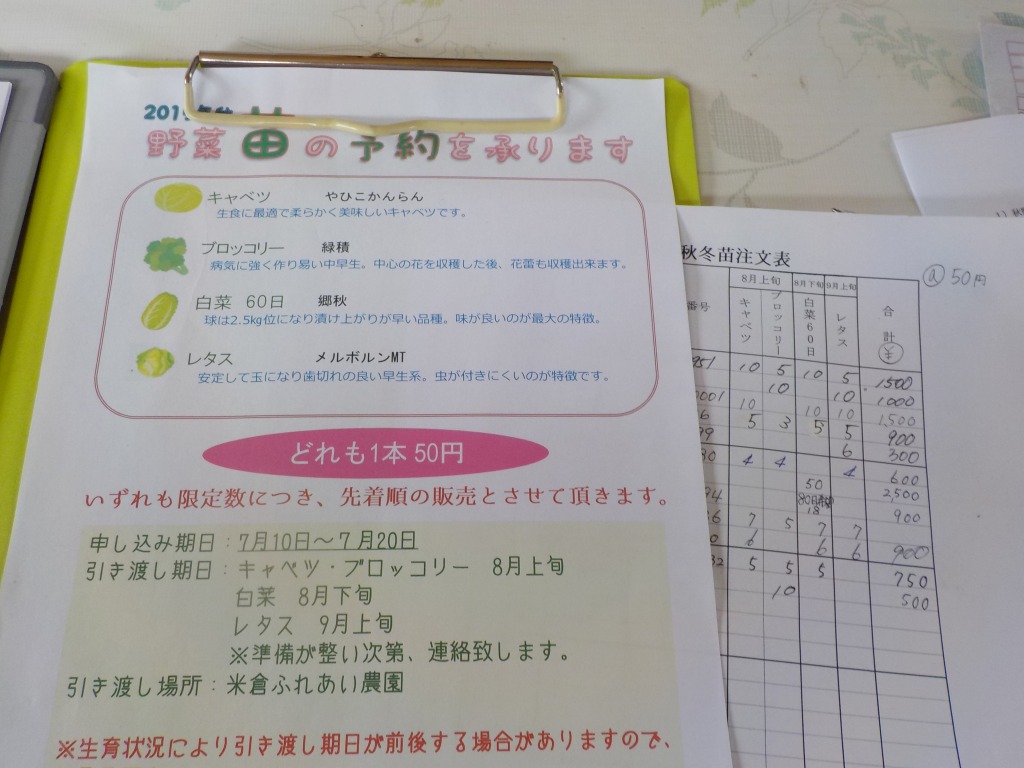 2019
野菜苗の予約を承ります
キャベツ やひこかんらん
生食に最適で柔らかく美味しいキャベツです。
ブロッコリー 緑積
病気に強く作り易い中早生。中心の花を収穫した後、花蕾も収穫出来ます。
白菜 60日 郷秋
球は2.5kg位になり漬け上がりが早い品種。味が良いのが最大の特徴。
レタス メルボルンMT
安定して玉になり歯切れの良い早生系。虫が付きにくいのが特徴です。
どれも1本 50円
いずれも限定数につき、先着順の販売とさせて頂きます。
申し込み期日：7月10日〜7月20日
引き渡し期日：キャベツ・ブロッコリー 8月上旬
白菜 8月下旬
レタス 9月上旬
※準備が整い次第、連絡致します。
引き渡し場所：米倉ふれあい農園
※生育状況により引き渡し期日が前後する場合がありますので、
秋冬苗注文表
@50円
番号 8月上旬 8月下旬 9月上旬 合計
キャベツ ブロッコリー 白菜60日 レタス ¥
951 10 5 10 5 1500
10 10 1000
0001 10 10 10 1,500
6 5 3 5 5 900
99 6 300
30 4 4 4 600
50 2,500
94 18 900
6 7 5 7 7
0 6 6 6 900
32 5 5 5 750
10 500